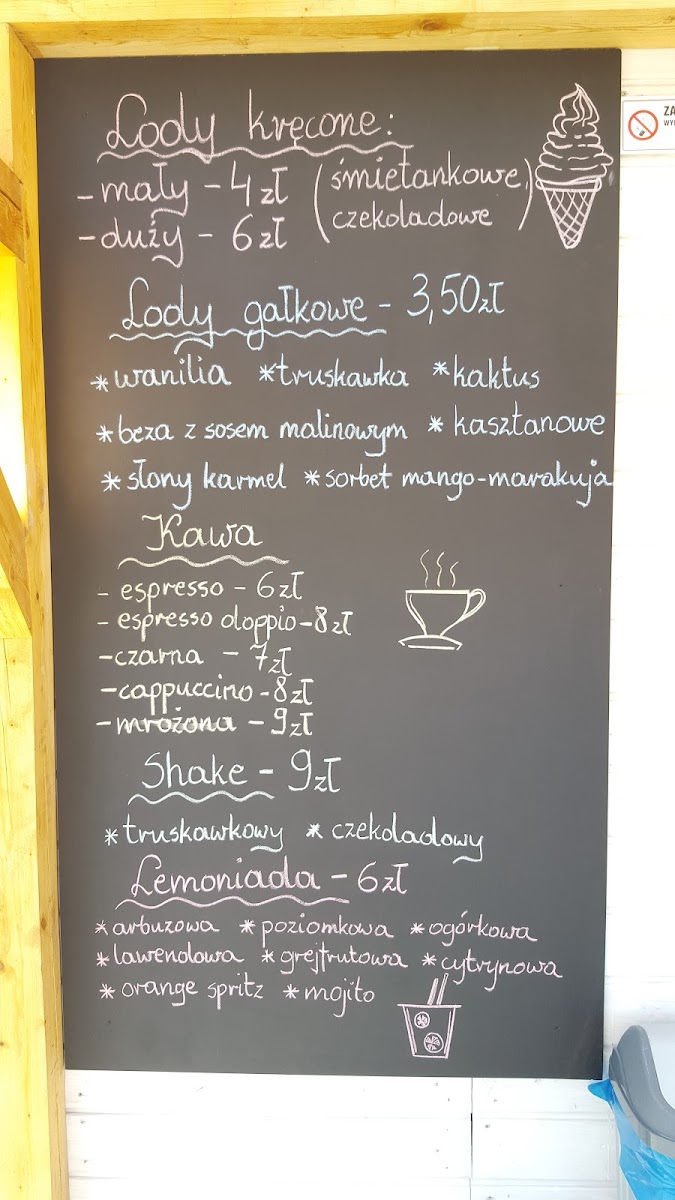 Lody kręcone:
- mały - 4 zł (śmietankowe,
- duży - 6 zł czekoladowe)
Lody gałkowe - 3,50 zł
* wanilia * truskawka * kaktus
* beza z sosem malinowym * kasztanowe
* słony karmel * sorbet mango-marakuja
Kawa
- espresso - 6 zł
- espresso doppio - 8 zł
- czarna - 7 zł
- cappuccino - 8 zł
- mrożona - 9 zł
Shake - 9 zł
* truskawkowy * czekoladowy
Lemoniada - 6 zł
* arbuzowa * poziomkowa * ogórkowa
* lawendowa * grejfrutowa * cytrynowa
* orange spritz * mojito
ZA